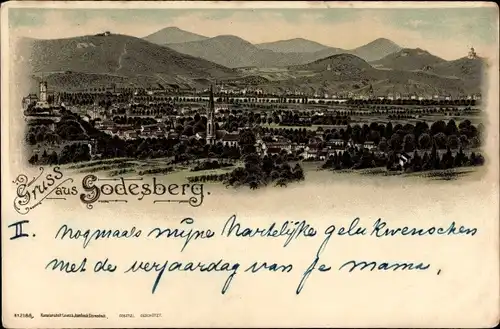 Gruss
aus Godesberg.
II. Nogmaals mijne Hartelijke gelukwenschen
met de verjaardag van je mama,